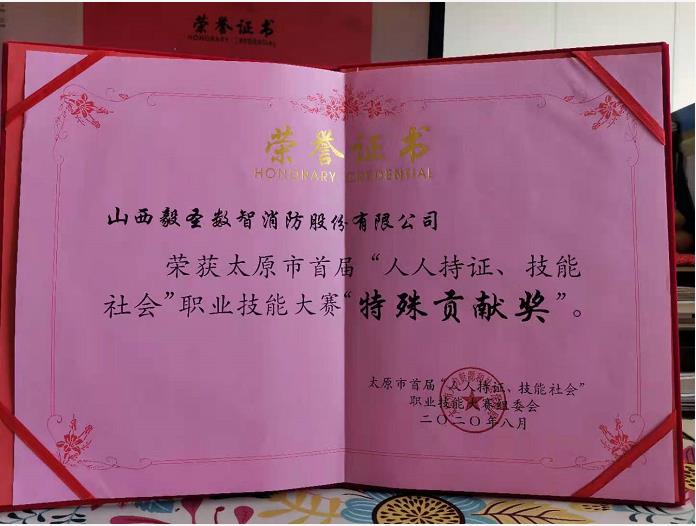 荣誉证书
荣誉证书
HONORARY CREDENTIAL
山西毅圣数智消防股份有限公司
荣获太原市首届“人人持证、技能
社会”职业技能大赛“特殊贡献奖”。
太原市首届“人人持证、技能社会”
职业技能大赛组委会
二〇二〇年八月